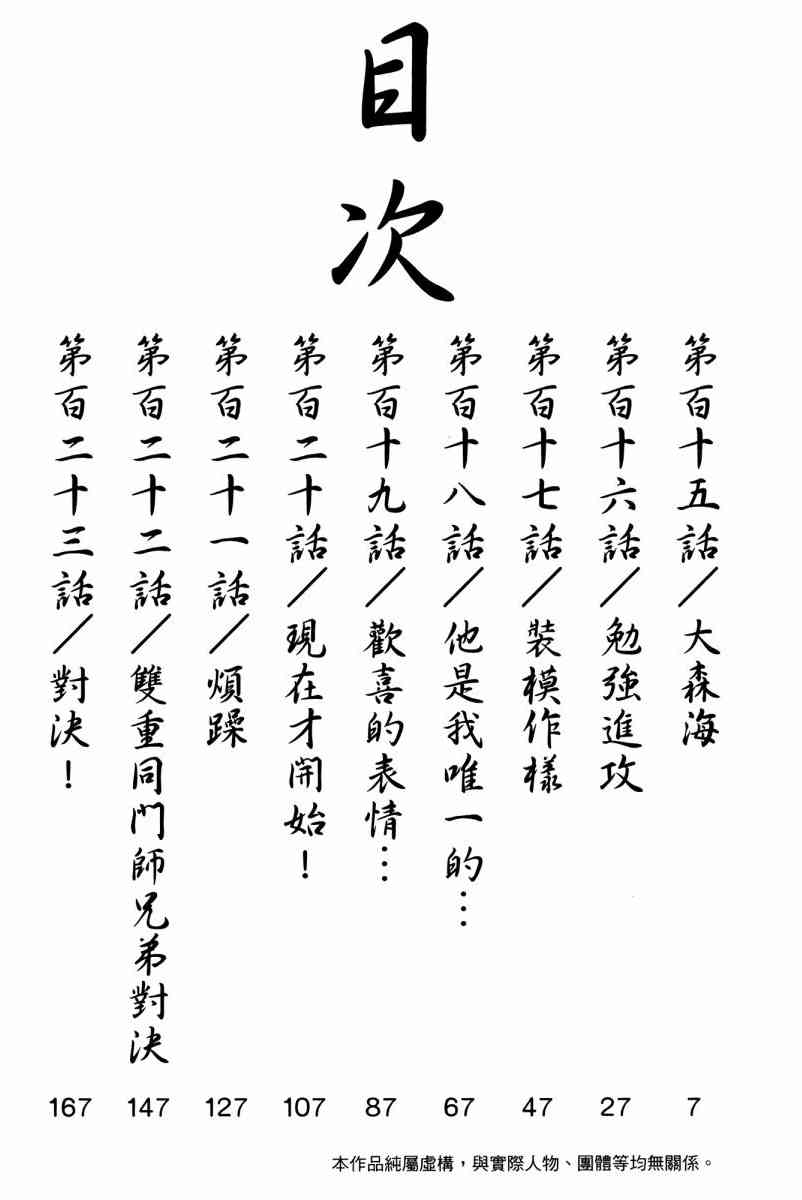 目次
第百十五話／大森海 7
第百十六話／勉強進攻 27
第百十七話／裝模作樣 47
第百十八話／他是我唯一的… 67
第百十九話／歡喜的表情… 87
第百二十話／現在才開始！ 107
第百二十一話／煩躁 127
第百二十二話／雙重同門師兄弟對決 147
第百二十三話／對決！ 167
本作品純屬虛構，與實際人物、團體等均無關係。